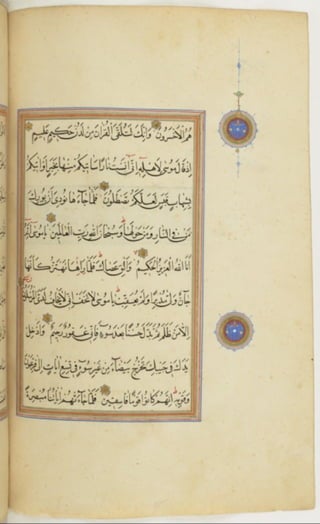 هُمُ الْأَخْسَرُونَ وَإِنَّكَ لَتُلَقَّى الْقُرْآنَ مِنْ لَدُنْ حَكِيمٍ عَلِيمٍ
إِذْ قَالَ مُوسَى لِأَهْلِهِ إِنِّي آنَسْتُ نَارًا سَآتِيكُمْ مِنْهَا بِخَبَرٍ أَوْ آتِيكُمْ
بِشِهَابٍ قَبَسٍ لَعَلَّكُمْ تَصْطَلُونَ فَلَمَّا جَاءَهَا نُودِيَ أَنْ بُورِكَ
مَنْ فِي النَّارِ وَمَنْ حَوْلَهَا وَسُبْحَانَ اللَّهِ رَبِّ الْعَالَمِينَ يَا مُوسَى إِنَّهُ
أَنَا اللَّهُ الْعَزِيزُ الْحَكِيمُ وَأَلْقِ عَصَاكَ فَلَمَّا رَآهَا تَهْتَزُّ كَأَنَّهَا
جَانٌّ وَلَّى مُدْبِرًا وَلَمْ يُعَقِّبْ يَا مُوسَى لَا تَخَفْ إِنِّي لَا يَخَافُ لَدَيَّ الْمُرْسَلُونَ
إِلَّا مَنْ ظَلَمَ ثُمَّ بَدَّلَ حُسْنًا بَعْدَ سُوءٍ فَإِنِّي غَفُورٌ رَحِيمٌ وَأَدْخِلْ
يَدَكَ فِي جَيْبِكَ تَخْرُجْ بَيْضَاءَ مِنْ غَيْرِ سُوءٍ فِي تِسْعِ آيَاتٍ إِلَى فِرْعَوْنَ
وَقَوْمِهِ إِنَّهُمْ كَانُوا قَوْمًا فَاسِقِينَ فَلَمَّا جَاءَتْهُمْ آيَاتُنَا مُبْصِرَةً